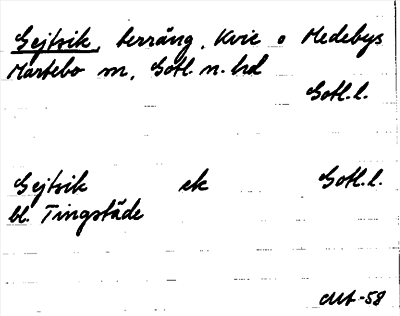 Gejtvik, terräng, Kvie o Medebys
Martebo m, Gotl. n. hd
Gotl. l.
Gejtvik ek Gotl. l.
bl. Tingstäde
-58